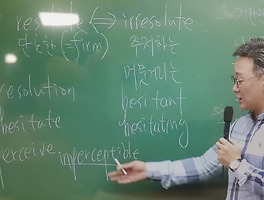 resolute ⟺ irresolute
단호한 (=firm) 주저하는
머뭇거리는
esolution hesitant
hesitate hesitating
erceive imperceptible